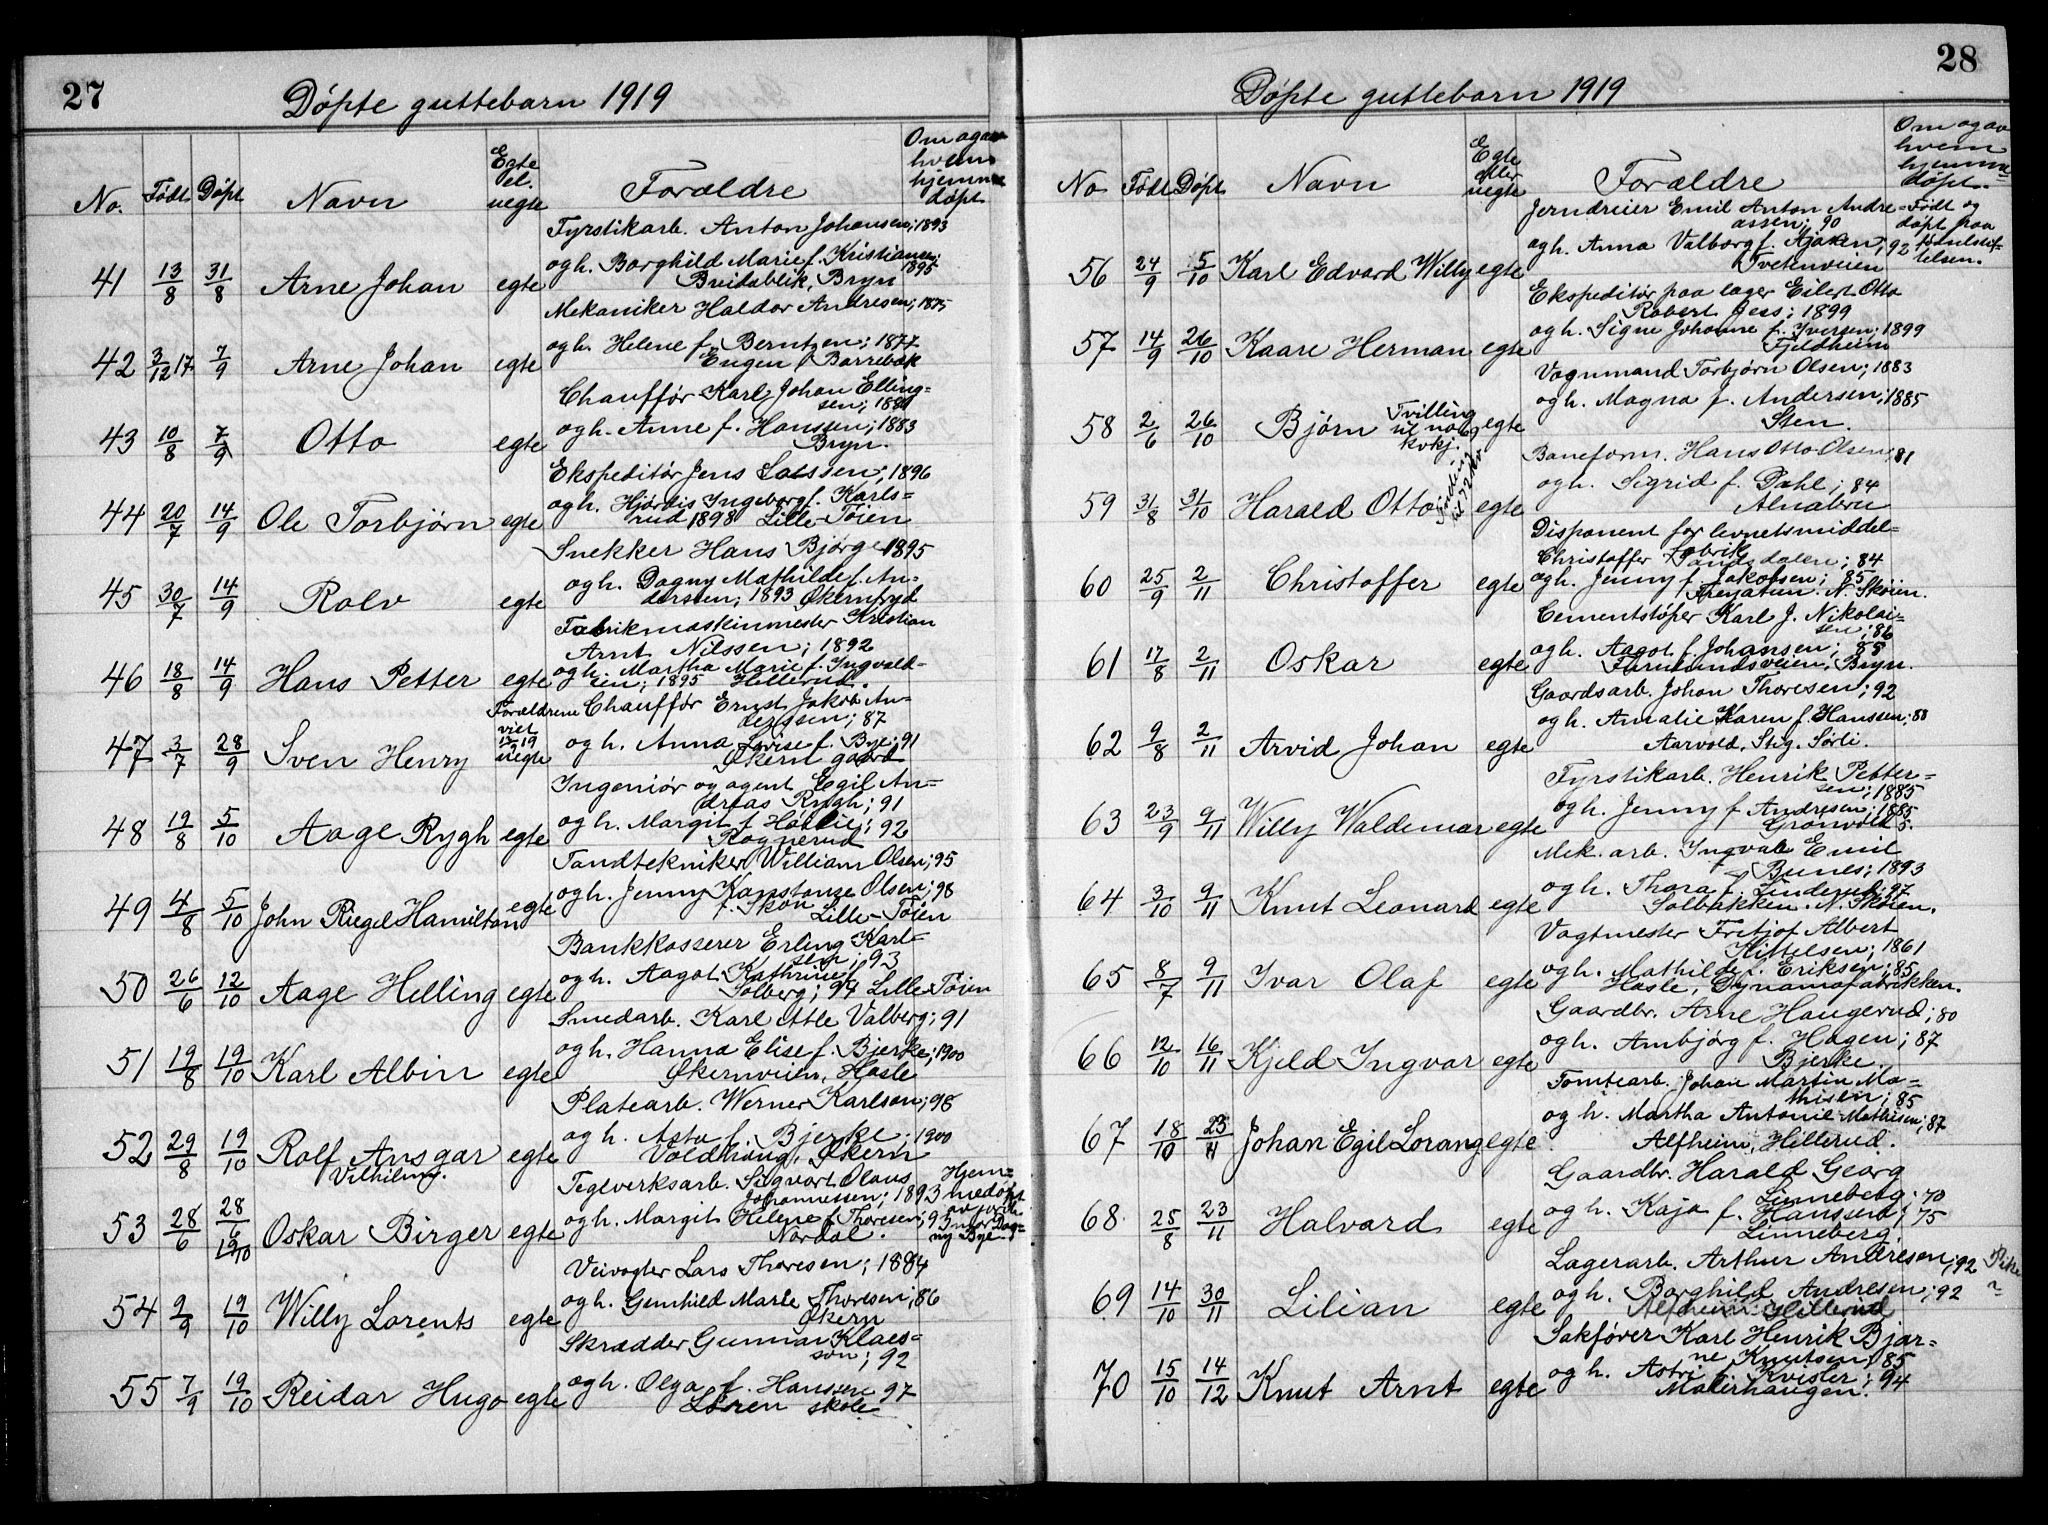 27
Døpte guttebarn 1919
No. Født Døpt Navn Egte el. uegte Forældre Om og av hvem hjemmedøpt
Fyrstikarb. Anton Johansen; 1893
og h. Borghild Marie f. Kristiansen; 1895
41 13/8 31/8 Arne Johan egte Breidablik, Bryn
Mekaniker Haldor Andresen; 1875
og h. Helene f. Berntzen; 1877
42 3/12 17 7/9 Arne Johan egte Engen, Borrebæk
Chauffør Karl Johan Elling=
sen; 1880
og h. Anne f. Hanssen; 1883
43 10/8 7/9 Otto egte Bryn.
Ekspeditør Jens Larssen; 1896
og h. Hjørdis Ingeborg f. Karls=
44 20/7 14/9 Ole Torbjørn egte rud 1898 Lille-Tøien
Snekker Hans Bjørge 1895
og h. Dagny Mathilde f. An=
45 30/7 14/9 Rolv egte derssen; 1893 Økernfryd
Fabrikmaskinmester Kristian
Arnt Nilssen; 1892
og h. Martha Marie f. Ingvald=
46 18/8 14/9 Hans Petter egte sen; 1895 Hillerud.
Forældrene viet 13/9 19
Chauffør Ernst Jakob An=
derssen; 87
og h. Anna Lovise f. Bye; 91
47 3/7 28/9 Sven Henry uegte Økern gaard
Ingeniør og agent Egil An=
dreas Rygh; 91
og h. Margit f. Høtlie; 92
48 19/8 5/10 Aage Rygh egte Rognerud
Tandtekniker William Olsen; 95
og h. Jenny Konstanse Olsen; 98
49 4/8 5/10 John Riegel Hamilton egte f. Skou Lille-Tøien
Bankkasserer Erling Karl=
sen; 93
og h. Aagot Kathrine f.
50 26/6 12/10 Aage Helling egte Solberg; 94 Lille-Tøien
Smedarb. Karl Atle Valberg; 91
og h. Hanna Elise f. Bjerke; 1900
51 19/8 19/10 Karl Albin egte Økernveien, Hasle
Platearb. Werner Karlson; 98
og h. Asta f. Bjerke; 1900
52 29/8 19/10 Rolf Ansgar Vilhilm. egte Voldhaug, Økern
Teglverksarb. Sigvart Olaus
Johannessen; 1893
og h. Margit Helene f. Thoresen; 93
53 28/6 28/6 19/10 Oskar Birger egte Nordal.
Hjem=
medøpt
av jorde=
mor Dag=
ny Bye.
Veivogter Lars Thoresen; 1884
og h. Gunhild Marie Thoresen; 86
54 9/9 19/10 Willy Lorents egte Økern
Skrædder Gunnar Klaes=
son; 92
og h. Olga f. Hansen 97
55 7/9 19/10 Reidar Hugo egte Løren skole
28
Døpte guttebarn 1919
No Født Døpt Navn Egte eller uegte Forældre Om og av hvem hjemme=døpt.
Jerndreier Emil Anton Andre=
assen; 90
og h. Anna Valborg f. Ajaxen; 92
56 24/9 5/10 Karl Edvard Willy egte Tvetenveien
Født og
døpt paa
fødselsstif=
telsen.
Ekspeditør paa lager Eilert Otto
Robert Jess; 1899
og h. Signe Johanne f. Iversen; 1899
57 14/9 26/10 Kaare Herman egte Fjeldheim
Vognmand Torbjørn Olsen; 1883
og h. Magna f. Andersen; 1885
58 2/6 26/10 Bjørn Tvilling til no 69 kvkj. egte Sten.
Baneform. Hans Otto Olsen; 81
og h. Sigrid f. Dahl; 84
59 31/8 31/10 Harald Otto egte Alnabru
Disponent for levnetsmiddel=
fabrik
Christoffer Sandsdalen; 84
og h. Jenny f. Jakobsen; 85
60 25/9 2/11 Christoffer egte Freyatun. N. Skøien.
Cementstøper Karl J. Nikolai=
sen; 86
og h. Aagot f. Johansen; 85
61 17/8 2/11 Oskar egte Furulundsveien, Bryn.
Gaardsarb. Johan Thoresen; 92
og h. Amalie Karen f. Hanssen; 88
62 9/8 2/11 Arvid Johan egte Aarvold. Stig. Sørli.
Fyrstikarb. Henrik Petter=
sen; 1885
og h. Jenny f. Andresen; 1885
63 23/9 9/11 Willy Waldemar egte Grønvold 5.
Mek. arb. Ingvald Emil
Bunes; 1893
og h. Thora f. Linderud; 97
64 3/10 9/11 Knut Leonard egte Solbakken. N. Skøien.
Vagtmester Fritjof Albert
Kittelsen; 1861
og h. Mathilde f. Eriksen; 85
65 8/7 9/11 Ivar Olaf egte Hasle, Dynamofabrikken.
Gaardbr. Arne Haugerud; 80
og h. Ambjørg f. Hagen; 87
66 12/10 16/11 Kjeld Ingvar egte Bjerke.
Tomtearb. Johan Martin Ma=
thisen; 85
og h. Martha Antonie Mathisen; 87
67 18/10 23/11 Johan Egil Lorang egte Alfheim, Hillerud.
Gaardbr. Harald Georg
Linneberg; 70
og h. Kaja f. Hanssen; 75
68 25/8 23/11 Halvard egte Linneberg.
Lagerarb. Arthur Andresen; 92 Pike
og h. Borghild Andresen; 92
69 14/10 30/11 Lilian egte Alfheim Hillerud
Sakfører Karl Henrik Bjar=
ne Knutsen; 85
og h. Astri f. Kvisler; 94
70 15/10 14/12 Knut Arnt egte Malerhaugen.